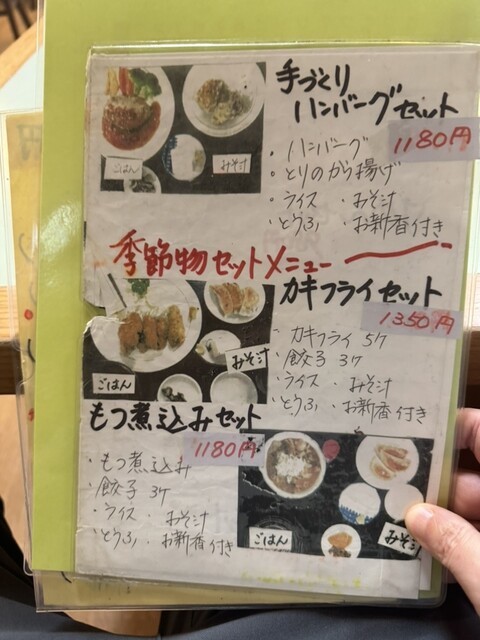 手づくり
ハンバーグセット
1180円
・ハンバーグ
・とりのから揚げ
・ライス ・みそ汁
・とうふ ・お新香付き
ごはん
みそ汁
季節物セットメニュー
カキフライセット
1350円
・カキフライ 5ケ
・餃子 3ケ
・ライス ・みそ汁
・とうふ ・お新香付き
ごはん
みそ汁
もつ煮込みセット
1180円
・もつ煮込み
・餃子 3ケ
・ライス ・みそ汁
・とうふ ・お新香付き
ごはん
みそ汁